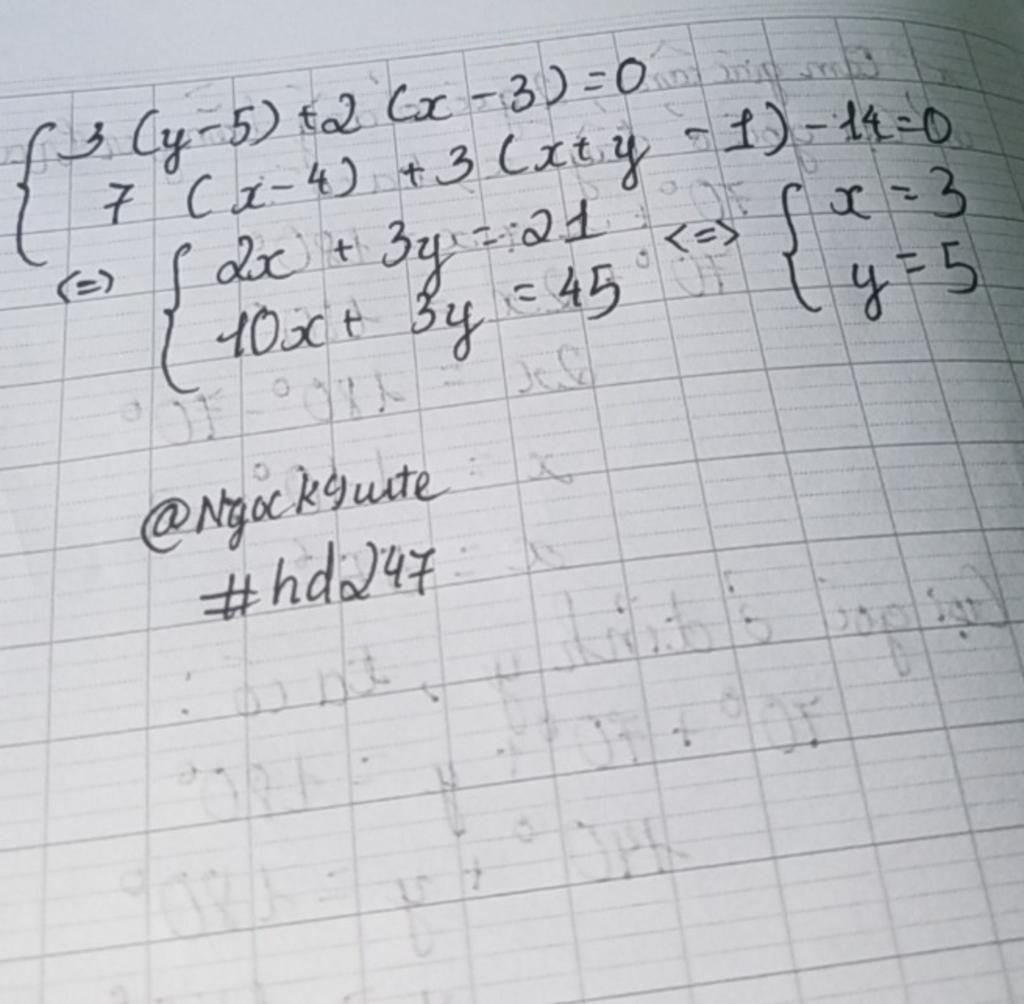 3 (y-5) + 2 (x - 3) = 0
7 (x - 4) + 3 (x + y - 1) - 14 = 0
<=> { 2x + 3y = 21 <=> { x = 3
10x + 3y = 45 y = 5
@Ngockyute
#hd247